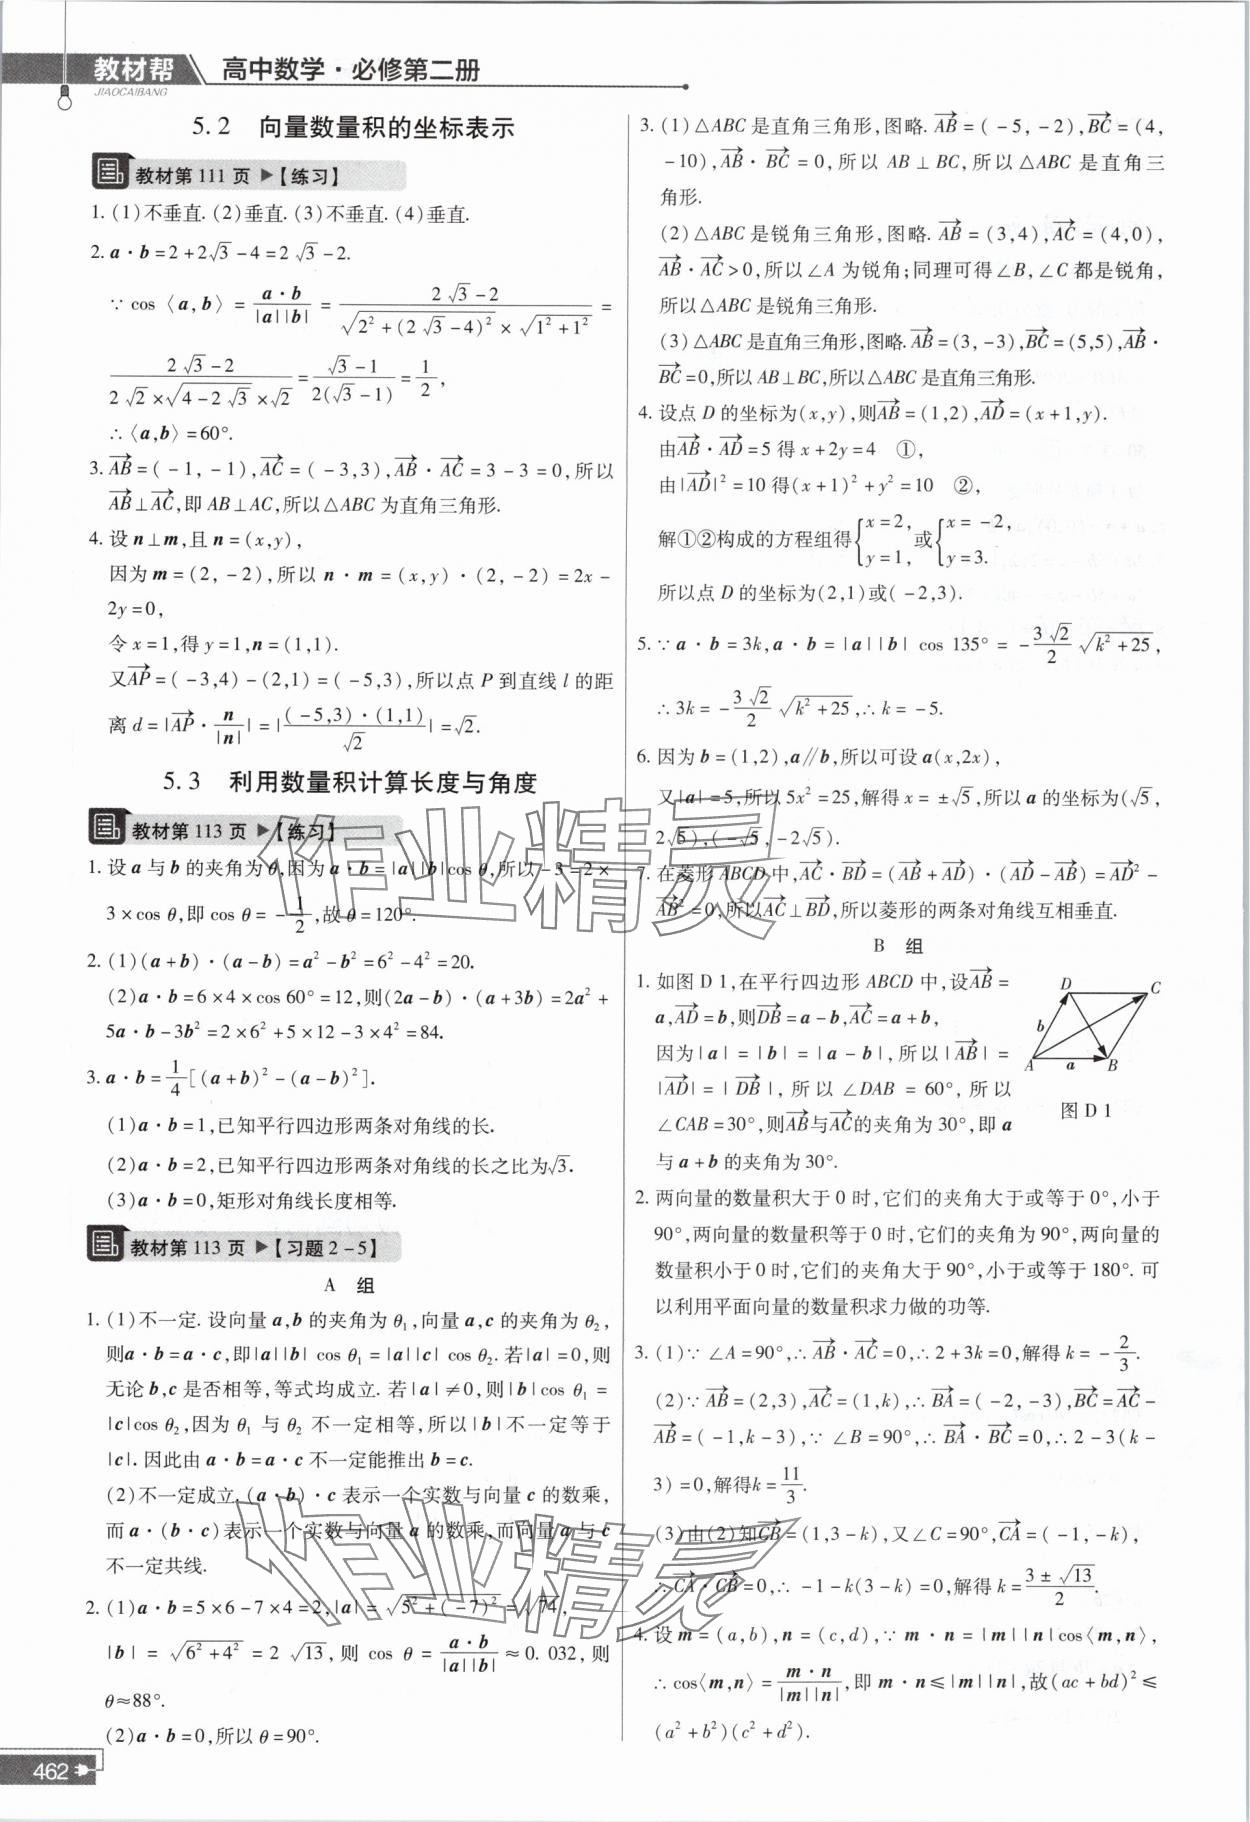 教材帮
JIAOCAIBANG
高中数学·必修第二册
5.2 向量数量积的坐标表示
教材第111页▶【练习】
1. (1)不垂直. (2)垂直. (3)不垂直. (4)垂直.
2. a·b=2+2√3-4=2√3-2.
∵cos〈a,b〉= a·b/|a||b| = (2√3-2)/(√(2²+(2√3-4)²)×√(1²+1²)) =
(2√3-2)/(2√2×√(4-2√3)×√2) = (√3-1)/(2(√3-1)) = 1/2,
∴〈a,b〉=60°.
3. AB→=(-1,-1),AC→=(-3,3),AB→·AC→=3-3=0,所以
AB→⊥AC→,即AB⊥AC,所以△ABC为直角三角形.
4. 设n⊥m,且n=(x,y),
因为m=(2,-2),所以n·m=(x,y)·(2,-2)=2x-
2y=0,
令x=1,得y=1,n=(1,1).
又AP→=(-3,4)-(2,1)=(-5,3),所以点P到直线l的距
离d=|AP→·n/|n||=|(-5,3)·(1,1)/√2|=√2.
5.3 利用数量积计算长度与角度
教材第113页▶【练习】
1. 设a与b的夹角为θ,因为a·b=|a||b|cos θ,所以-3=2×
3×cos θ,即cos θ=-1/2,故θ=120°.
2. (1)(a+b)·(a-b)=a²-b²=6²-4²=20.
(2)a·b=6×4×cos 60°=12,则(2a-b)·(a+3b)=2a²+
5a·b-3b²=2×6²+5×12-3×4²=84.
3. a·b=1/4[(a+b)²-(a-b)²].
(1)a·b=1,已知平行四边形两条对角线的长.
(2)a·b=2,已知平行四边形两条对角线的长之比为√3.
(3)a·b=0,矩形对角线长度相等.
教材第113页▶【习题2-5】
A 组
1. (1)不一定. 设向量a,b的夹角为θ₁,向量a,c的夹角为θ₂,
则a·b=a·c,即|a||b|cos θ₁=|a||c|cos θ₂. 若|a|=0,则
无论b,c是否相等,等式均成立. 若|a|≠0,则|b|cos θ₁=
|c|cos θ₂,因为θ₁与θ₂不一定相等,所以|b|不一定等于
|c|. 因此由a·b=a·c不一定能推出b=c.
(2)不一定成立. (a·b)·c表示一个实数与向量c的数乘,
而a·(b·c)表示一个实数与向量a的数乘,而向量a与c
不一定共线.
2. (1)a·b=5×6-7×4=2,|a|=√(5²+(-7)²)=√74,
|b|=√(6²+4²)=2√13,则cos θ=a·b/|a||b|≈0.032,则
θ≈88°.
(2)a·b=0,所以θ=90°.
462
3. (1)△ABC是直角三角形,图略. AB→=(-5,-2),BC→=(4,
-10),AB→·BC→=0,所以AB⊥BC,所以△ABC是直角三
角形.
(2)△ABC是锐角三角形,图略. AB→=(3,4),AC→=(4,0),
AB→·AC→>0,所以∠A为锐角;同理可得∠B,∠C都是锐角,
所以△ABC是锐角三角形.
(3)△ABC是直角三角形,图略. AB→=(3,-3),BC→=(5,5),AB→·
BC→=0,所以AB⊥BC,所以△ABC是直角三角形.
4. 设点D的坐标为(x,y),则AB→=(1,2),AD→=(x+1,y).
由AB→·AD→=5得x+2y=4 ①,
由|AD→|²=10得(x+1)²+y²=10 ②,
解①②构成的方程组得{x=2,y=1,或{x=-2,y=3.
所以点D的坐标为(2,1)或(-2,3).
5. ∵a·b=3k,a·b=|a||b|cos 135°=-3√2/2 √(k²+25),
∴3k=-3√2/2 √(k²+25),∴k=-5.
6. 因为b=(1,2),a∥b,所以可设a(x,2x),
又|a|=5,所以5x²=25,解得x=±√5,所以a的坐标为(√5,
2√5),(-√5,-2√5).
7. 在菱形ABCD中,AC→·BD→=(AB→+AD→)·(AD→-AB→)=AD→²-
AB→²=0,所以AC→⊥BD→,所以菱形的两条对角线互相垂直.
B 组
1. 如图D1,在平行四边形ABCD中,设AB→=
a,AD→=b,则DB→=a-b,AC→=a+b,
因为|a|=|b|=|a-b|,所以|AB→|=
|AD→|=|DB→|,所以∠DAB=60°,所以
∠CAB=30°,则AB→与AC→的夹角为30°,即a
与a+b的夹角为30°.
D C
b
A a B
图D1
2. 两向量的数量积大于0时,它们的夹角大于或等于0°,小于
90°,两向量的数量积等于0时,它们的夹角为90°,两向量的
数量积小于0时,它们的夹角大于90°,小于或等于180°. 可
以利用平面向量的数量积求力做的功等.
3. (1)∵∠A=90°,∴AB→·AC→=0,∴2+3k=0,解得k=-2/3.
(2)∵AB→=(2,3),AC→=(1,k),∴BA→=(-2,-3),BC→=AC→-
AB→=(-1,k-3),∵∠B=90°,∴BA→·BC→=0,∴2-3(k-
3)=0,解得k=11/3.
(3)由(2)知CB→=(1,3-k),又∠C=90°,CA→=(-1,-k),
∴CA→·CB→=0,∴-1-k(3-k)=0,解得k=(3±√13)/2.
4. 设m=(a,b),n=(c,d),∵m·n=|m||n|cos〈m,n〉,
∴cos〈m,n〉=m·n/|m||n|,即m·n≤|m||n|,故(ac+bd)²≤
(a²+b²)(c²+d²).
作业精灵
作业精灵